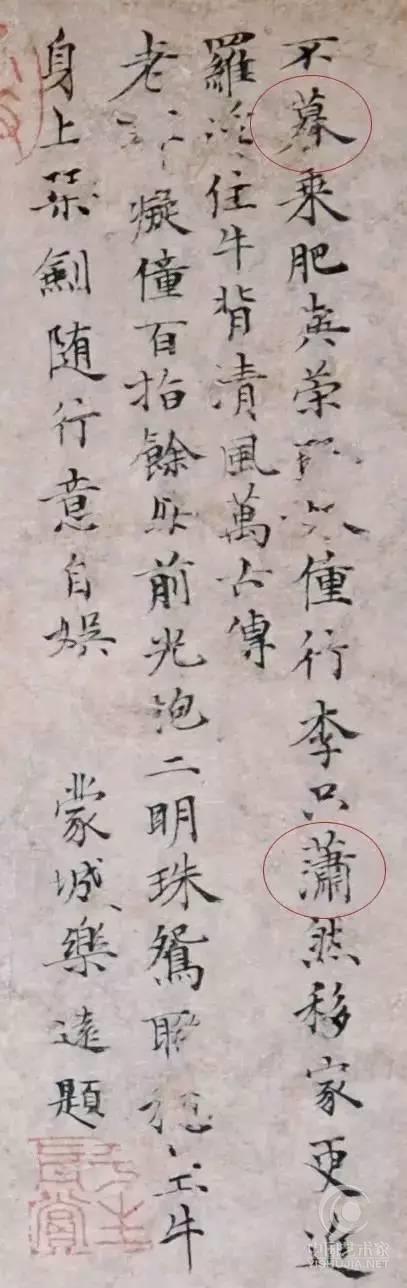 不慕乘肥與榮僮行李只蕭然移家更
羅浮住牛背清風萬古傳
老癡僮百指餘眼前光泡二明珠鴛穩坐牛
身上琹劍随行意自娛 蒙城樂遠題
中国艺术家
YISHUJIA.NET